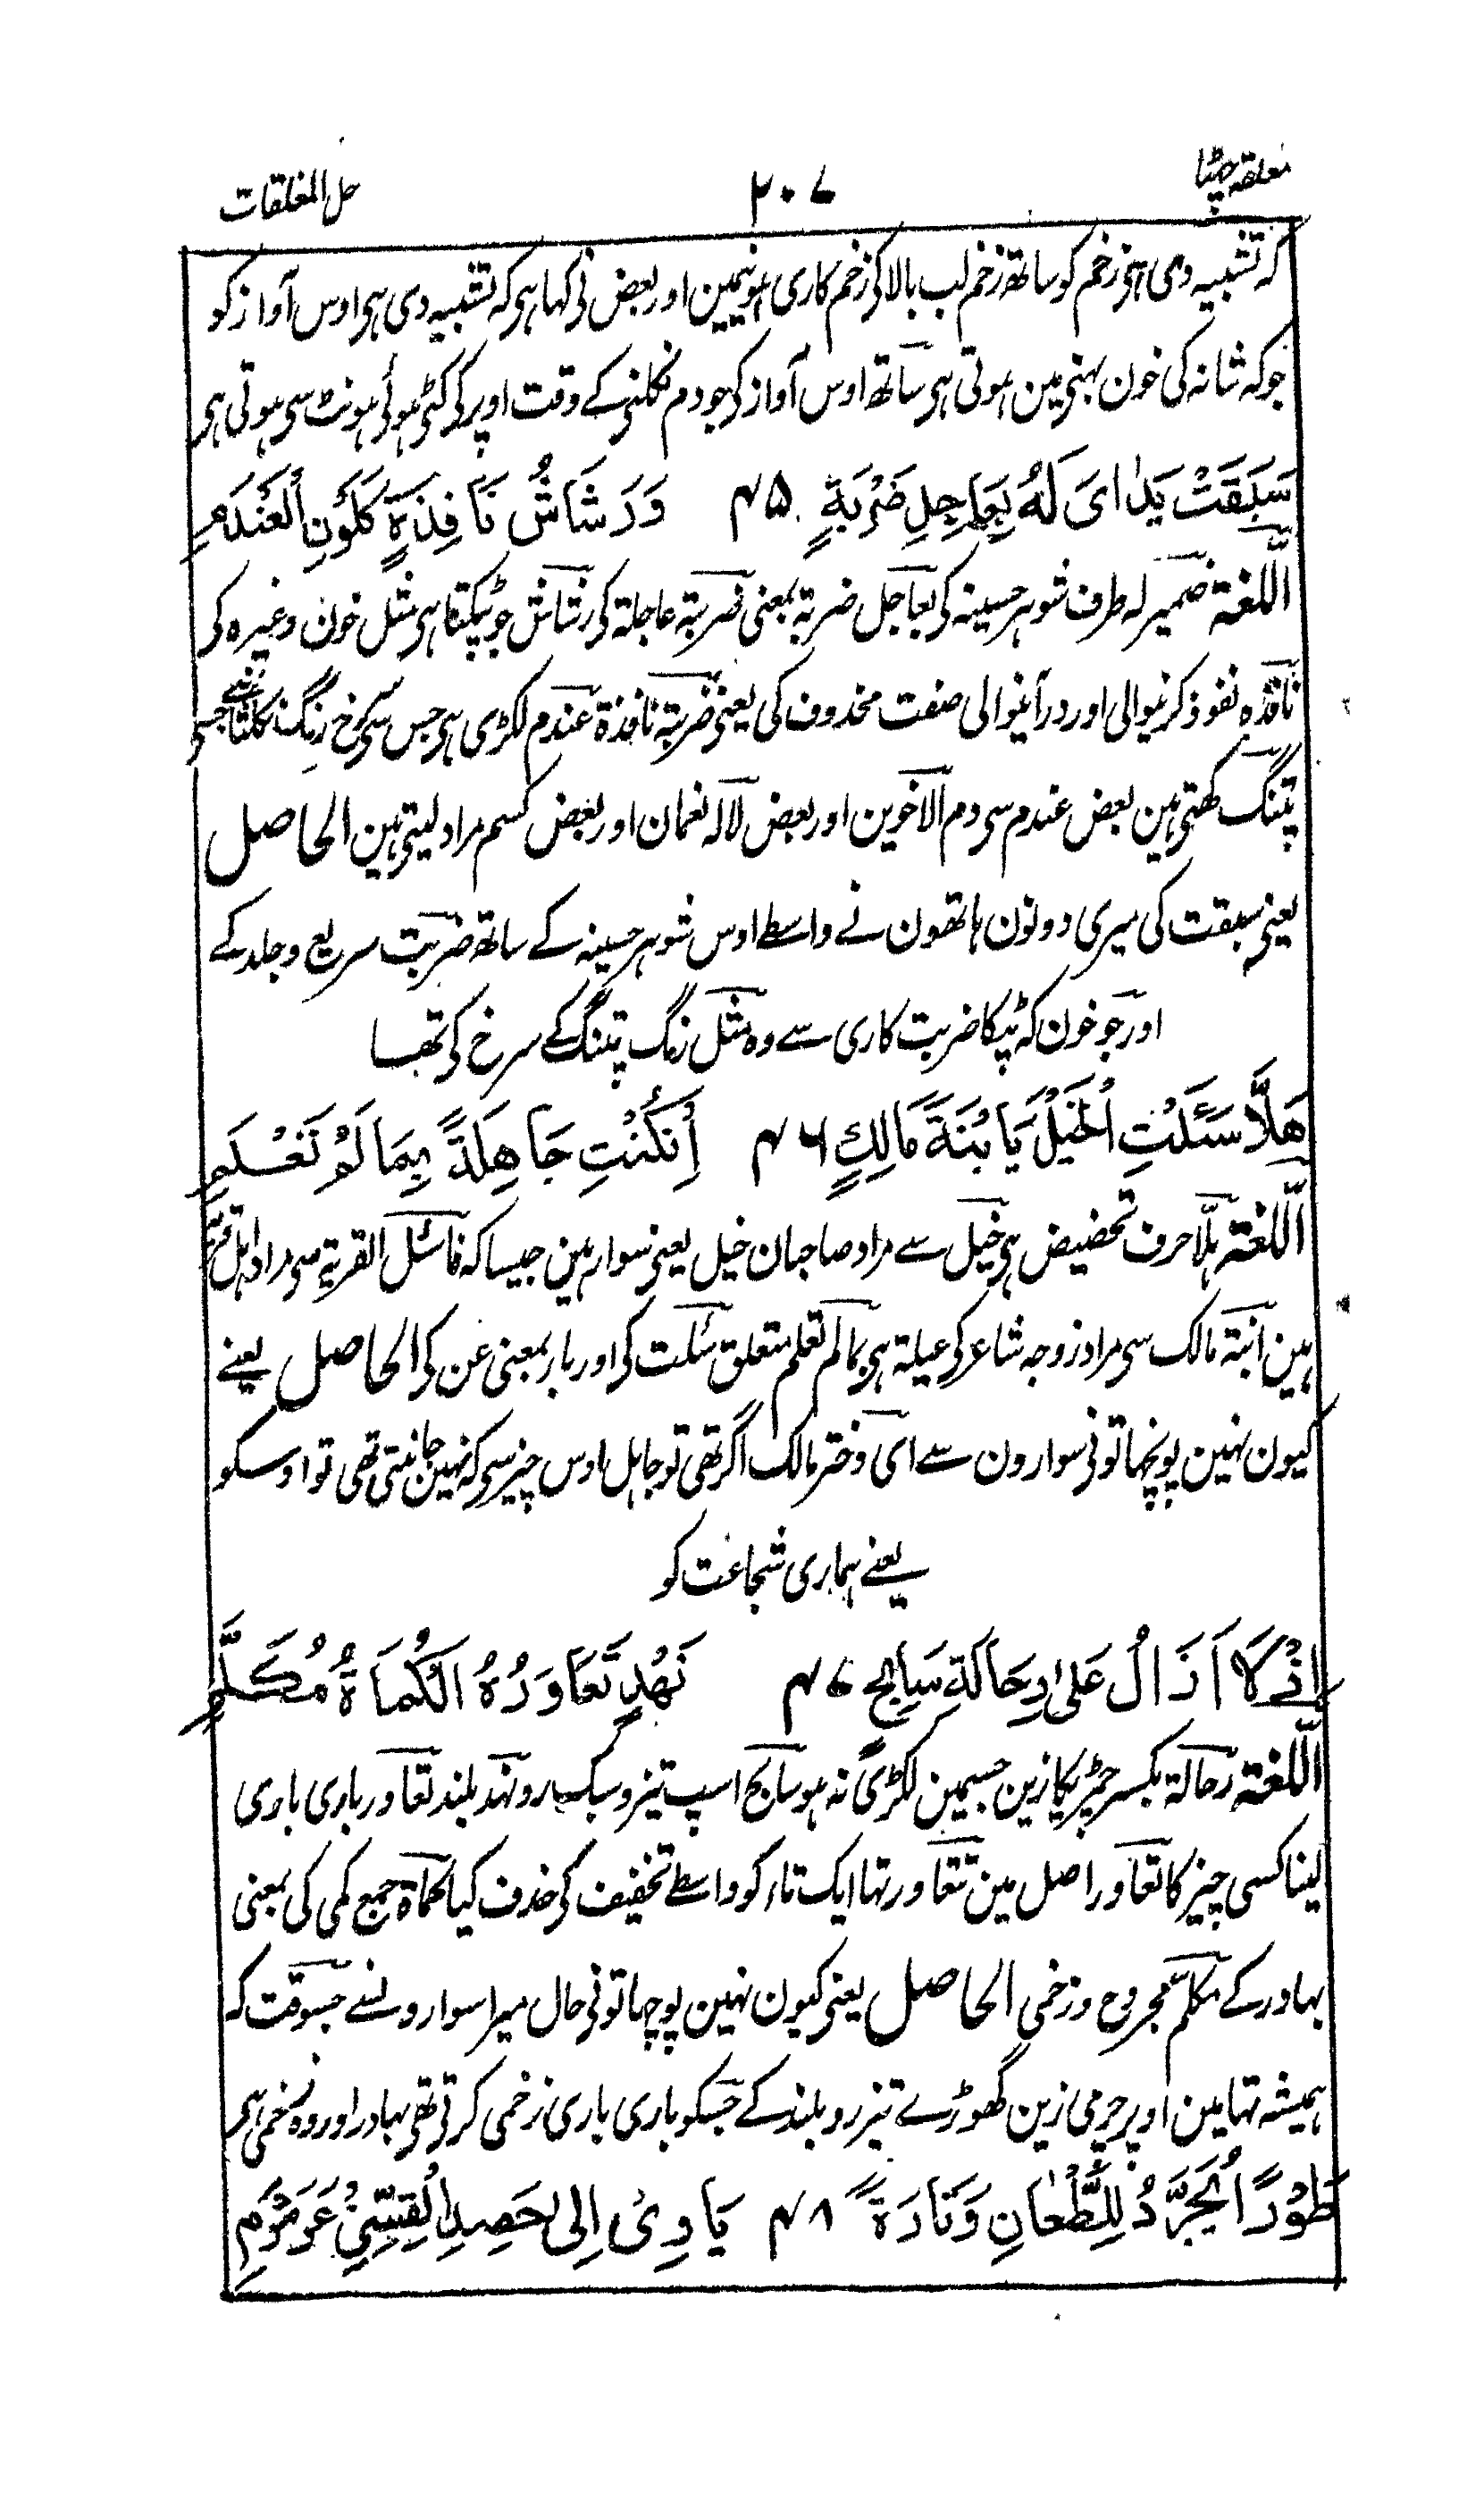 معلقہ چھٹا ۲۰۷ حل المغلقات
کہ تشبیہ دی ہی زخم کو ساتھ زخم لب بالا کی زخم کاری ہونیمین اور بعض نی کہا ہی کہ تشبیہ دی ہی اوس آواز کو
جو کہ شانہ کی خون بہنی مین ہوتی ہی ساتھ اوس آواز کی جو دم نکلنی کے وقت اوپر کی کٹی ہوئی ہونٹ سی ہوتی ہی
سَبَقَتْ يَدَاىَ لَهُ بِعَاجِلِ ضَرْبَةٍ ۴۵ وَرَشَاشُ نَافِذَةٍ كَلَوْنِ الْعَنْدَمِ
اللّغة ضمیر لہ طرف شوہر حسینہ کی بعاجل ضربۃ بمعنی ضربۃ عاجلۃ کی رشاش جو ٹپکتا ہی مثل خون وغیرہ کی
نافذہ نفوذ کرنیوالی اور درآنیوالی صفت محذوف کی یعنی ضربۃ نافذۃ عندم لکڑی ہی جس سی سرخ رنگ نکلتا ہے جسی
پتنگ کہتی ہین بعض عندم سی دم الاخوین اور بعض لالہ نعمان اور بعض کسم مراد لیتی ہین الحاصل
یعنی سبقت کی میری دونون ہاتھون نے واسطے اوس شوہر حسینہ کے ساتھ ضربت سریع و جلد کے
اور جو خون کہ ٹپکا ضربت کاری سے وہ مثل رنگ پتنگ کے سرخ کی تھا
هَلَّا سَئَلْتِ الْخَيْلَ يَا بْنَةَ مَالِكٍ ۴۶ إِنْ كُنْتِ جَاهِلَةً بِمَا لَمْ تَعْلَمِ
اللّغة ہلّا حرف تحضیض ہی خیل سے مراد صاحبان خیل یعنی سوار ہین جیسا کہ فاسئل القریۃ سی مراد اہل قریہ
ہین ابنۃ مالک سی مراد زوجہ شاعر کی عبلۃ ہی بما لم تعلم متعلق سئلت کی اور باء بمعنی عن کی الحاصل یعنے
کیون نہین پونچھا تونی سوارون سے ای دختر مالک اگر تھی تو جاہل اوس چیز سی کہ نہین جانتی تھی تو اوسکو
یعنے ہماری شجاعت کو
إِذْ لَا أَزَالُ عَلَى رِحَالَةِ سَابِحٍ ۴۷ نَهْدٍ تَعَاوَرُهُ الْكُمَاةُ مُكَلَّمِ
اللّغة رحالۃ بکسر چمڑیکا زین جسیمین لکڑی نہ ہو سابح اسپ تیز و سبک رو نہد بلند تعاور باری باری
لینا کسی چیز کا تعاور اصل مین تتعاور تھا ایک تاء کو واسطے تخفیف کی حذف کیا کماۃ جمع کمی کی بمعنی
بہادر کے مکلم مجروح و زخمی الحاصل یعنی کیون نہین پوچھا تونی حال میرا سوارونسے جسوقت کہ
ہمیشہ تھا مین اوپر چرمی زین گھوڑے تیز رو بلند کے جسکو باری باری زخمی کرتی تھی بہادر اور وہ زخمی ہی
طَوْرًا يُجَرَّدُ لِلطِّعَانِ وَتَارَةً ۴۸ يَاوِىْ اِلٰى حَصِدِ الْقِسِيِّ عَرَمْرَمِ